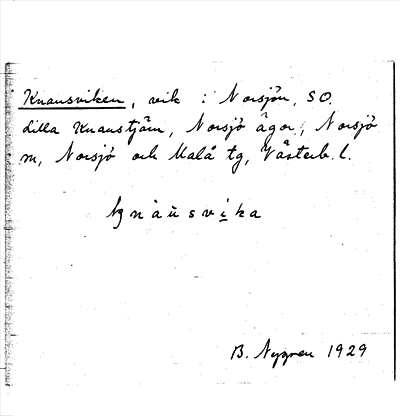 Knausviken, vik i Norsjön, SO.
lilla Knaustjärn, Norsjö ägor, Norsjö
sn, Norsjö och Malå tg, Västerb. l.
knàusvika
B. Nygren 1929